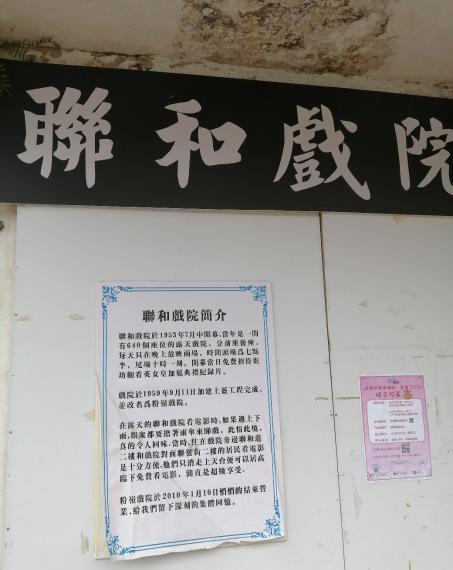 聯和戲院
聯和戲院簡介
聯和戲院於1953年7月中開幕,當年是一間
有640個座位的露天戲院。分前座後座,
每天只在晚上放映兩場,時間頭場爲七點
半,尾場十時一刻。開幕當日免費招待街
坊觀看英女皇加冕典禮紀錄片。
戲院於1959年9月11日加建上蓋工程完成,
並改名爲粉嶺戲院。
在露天的聯和戲院看電影時,如果遇上下
雨,觀衆都要擔著雨傘來睇戲,此情此境,
真的令人回味,當時,住在戲院旁邊聯和道
二樓和戲院對面聯發街二樓的居民看電影
是十分方便,他們只消走上天台便可以居高
臨下免費看電影,簡直是超級享受。
粉嶺戲院於2010年1月10日悄悄的結束營
業,給我們留下深刻的集體回憶。